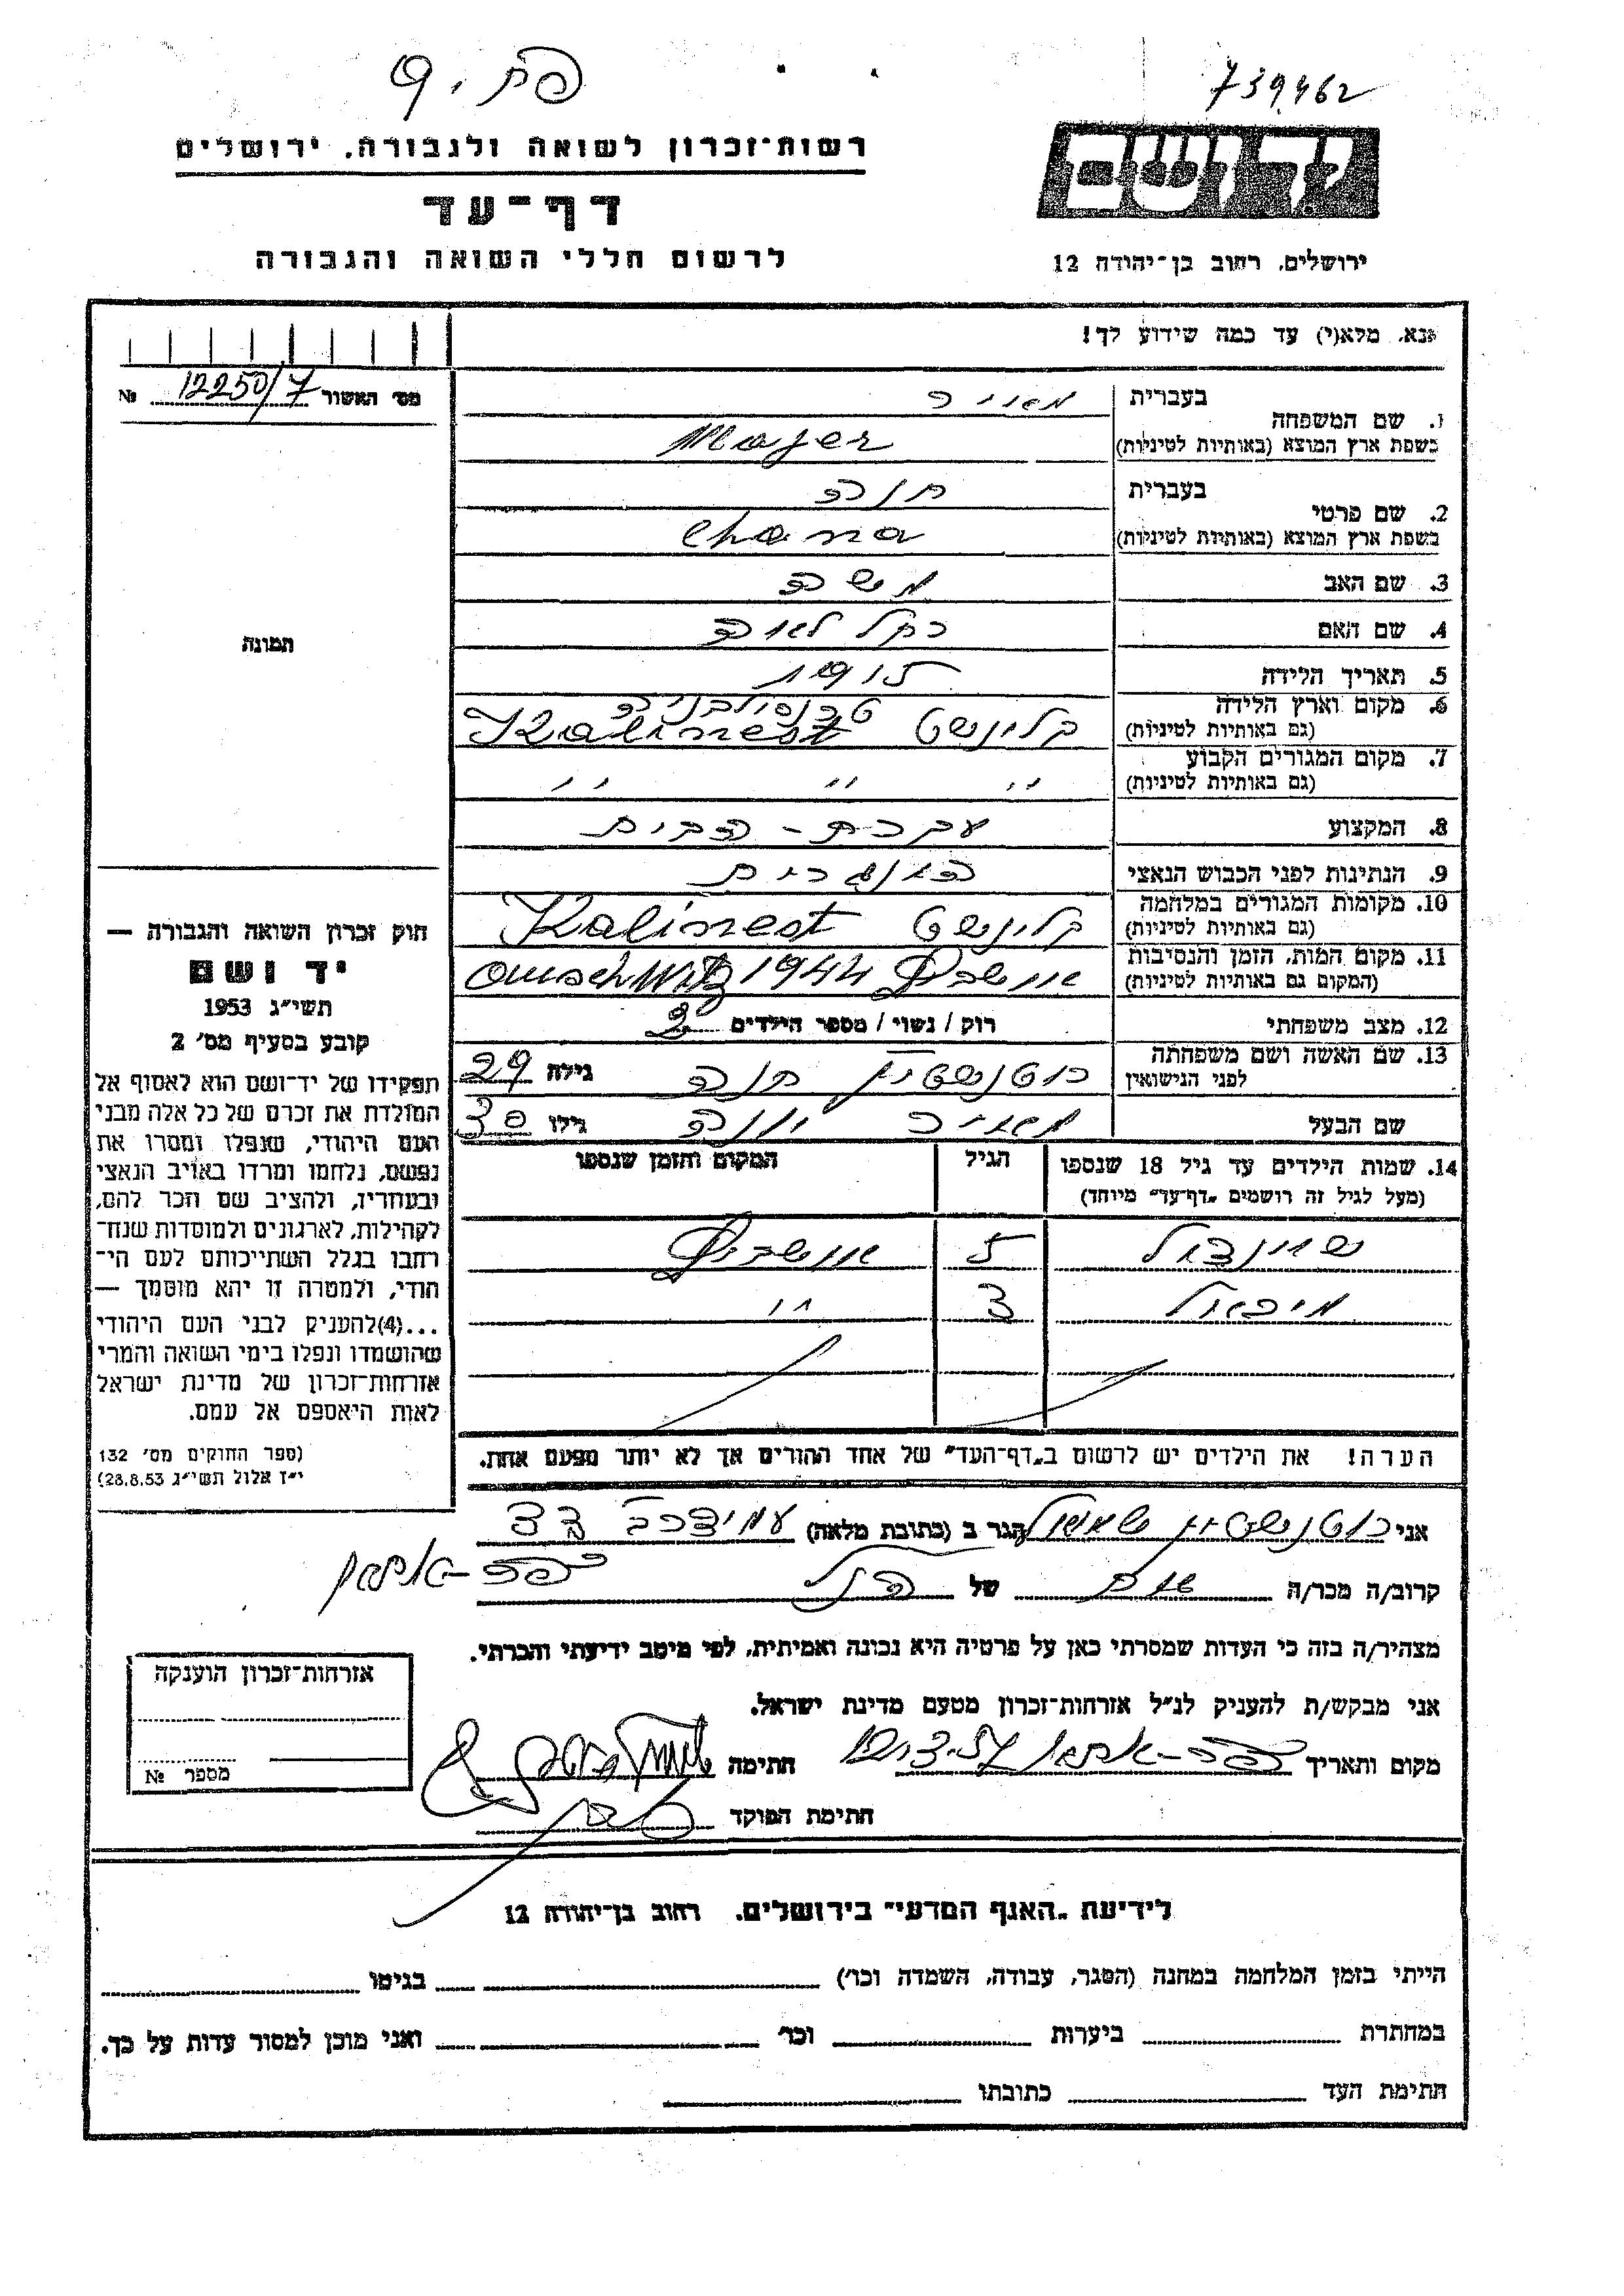 739462
רשות־זכרון לשואה ולגבורה. ירושלים
יד ושם
דף־עד
לרשום חללי השואה והגבורה
ירושלים, רחוב בן־יהודה 12
אנא, מלא(י) עד כמה שידוע לך!
מס׳ האשור 12250/7 №
1. שם המשפחה
בעברית מאיר
בשפת ארץ המוצא (באותיות לטיניות) Majer
2. שם פרטי
בעברית חנה
בשפת ארץ המוצא (באותיות לטיניות) Chana
3. שם האב משה
4. שם האם רחל לאה
5. תאריך הלידה 1915
6. מקום וארץ הלידה
(גם באותיות לטיניות) קלינשט טרנסילבניה Kalinest
7. מקום המגורים הקבוע
(גם באותיות לטיניות) ״ ״ ״
8. המקצוע עקרת - הבית
9. הנתינות לפני הכבוש הנאצי הונגרית
10. מקומות המגורים במלחמה
(גם באותיות לטיניות) קלינשט Kalinest
11. מקום המות, הזמן והנסיבות
(המקום גם באותיות לטיניות) אושביץ 1944 Auschwitz
12. מצב משפחתי רוק / נשוי / מספר הילדים 2
13. שם האשה ושם משפחתה
לפני הנישואין רוטנשטיין חנה גילה 29
שם הבעל מאיר יונה גילו 30
14. שמות הילדים עד גיל 18 שנספו
(מעל לגיל זה רושמים „דף־עד״ מיוחד)
הגיל
המקום והזמן שנספו
שיינדל 5 אושביץ
מיכאל 3 ״
הערה! את הילדים יש לרשום ב„דף־העד״ של אחד ההורים אך לא יותר מפעם אחת.
תמונה
חוק זכרון השואה והגבורה —
יד ושם
תשי״ג 1953
קובע בסעיף מס׳ 2
תפקידו של יד־ושם הוא לאסוף אל
המולדת את זכרם של כל אלה מבני
העם היהודי, שנפלו ומסרו את
נפשם, נלחמו ומרדו באויב הנאצי
ובעוזריו, ולהציב שם וזכר להם,
לקהילות, לארגונים ולמוסדות שנח־
רבו בגלל השתייכותם לעם הי־
הודי, ולמטרה זו יהא מוסמך —
...(4)להעניק לבני העם היהודי
שהושמדו ונפלו בימי השואה והמרי
אזרחות־זכרון של מדינת ישראל
לאות היאספם אל עמם.
(ספר החוקים מס׳ 132
י״ז אלול תשי״ג 28.8.53)
אני רוטנשטיין שמואל הגר ב (כתובת מלאה) עמידר ב 33
כפר-אתא
קרוב/ה מכר/ה אח של הנ״ל
מצהיר/ה בזה כי העדות שמסרתי כאן על פרטיה היא נכונה ואמיתית, לפי מיטב ידיעתי והכרתי.
אני מבקש/ת להעניק לנ״ל אזרחות־זכרון מטעם מדינת ישראל.
מקום ותאריך כפר-אתא חתימה
חתימת הפוקד
אזרחות־זכרון הוענקה
מספר №
לידיעת „האגף המדעי״ בירושלים. רחוב בן־יהודה 12
הייתי בזמן המלחמה במחנה (הסגר, עבודה, השמדה וכו׳) בגיטו
במחתרת ביערות וכו׳ ואני מוכן למסור עדות על כך.
חתימת העד כתובתו